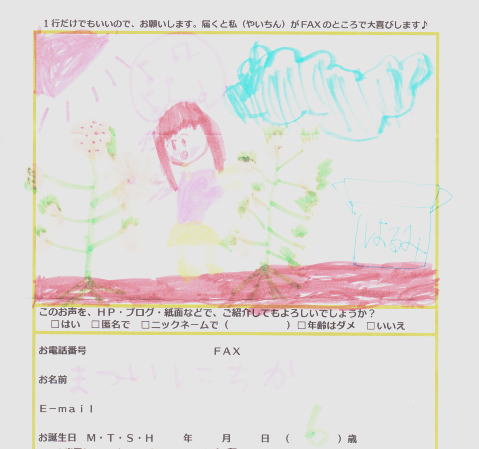 1行だけでもいいので、お願いします。届くと私（やいちん）がFAXのところで大喜びします♪
はるみ
このお声を、HP・ブログ・紙面などで、ご紹介してもよろしいでしょうか？
□はい □匿名で □ニックネームで（ ）□年齢はダメ □いいえ
お電話番号 FAX
お名前
E-mail
お誕生日 M・T・S・H 年 月 日 （6）歳